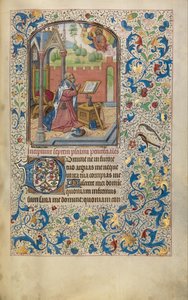 Incipiunt septem psalmi penitentiales
Domine ne in furore
tuo arguas me neque
in ira tua corripias me
Miserere mei domine
quoniam infirmus
sum sana me domine quoniam